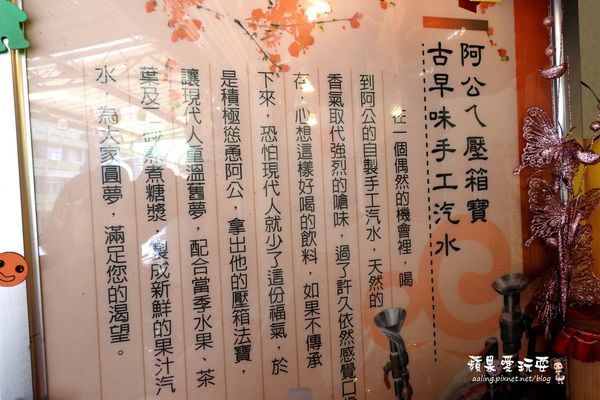 阿公ㄟ壓箱寶
古早味手工汽水
在一個偶然的機會裡，喝
到阿公的自製手工汽水，天然的
香氣取代強烈的嗆味，過了許久依然感覺口
存，心想這樣好喝的飲料，如果不傳承
下來，恐怕現代人就少了這份福氣，於
是積極慫恿阿公，拿出他的壓箱法寶，
讓現代人重溫舊夢，配合當季水果、茶
葉及一 煮糖漿，製成新鮮的果汁汽
水，為大家圓夢，滿足您的渴望。
蘋果愛玩耍
aaling.pixnet.net/blog